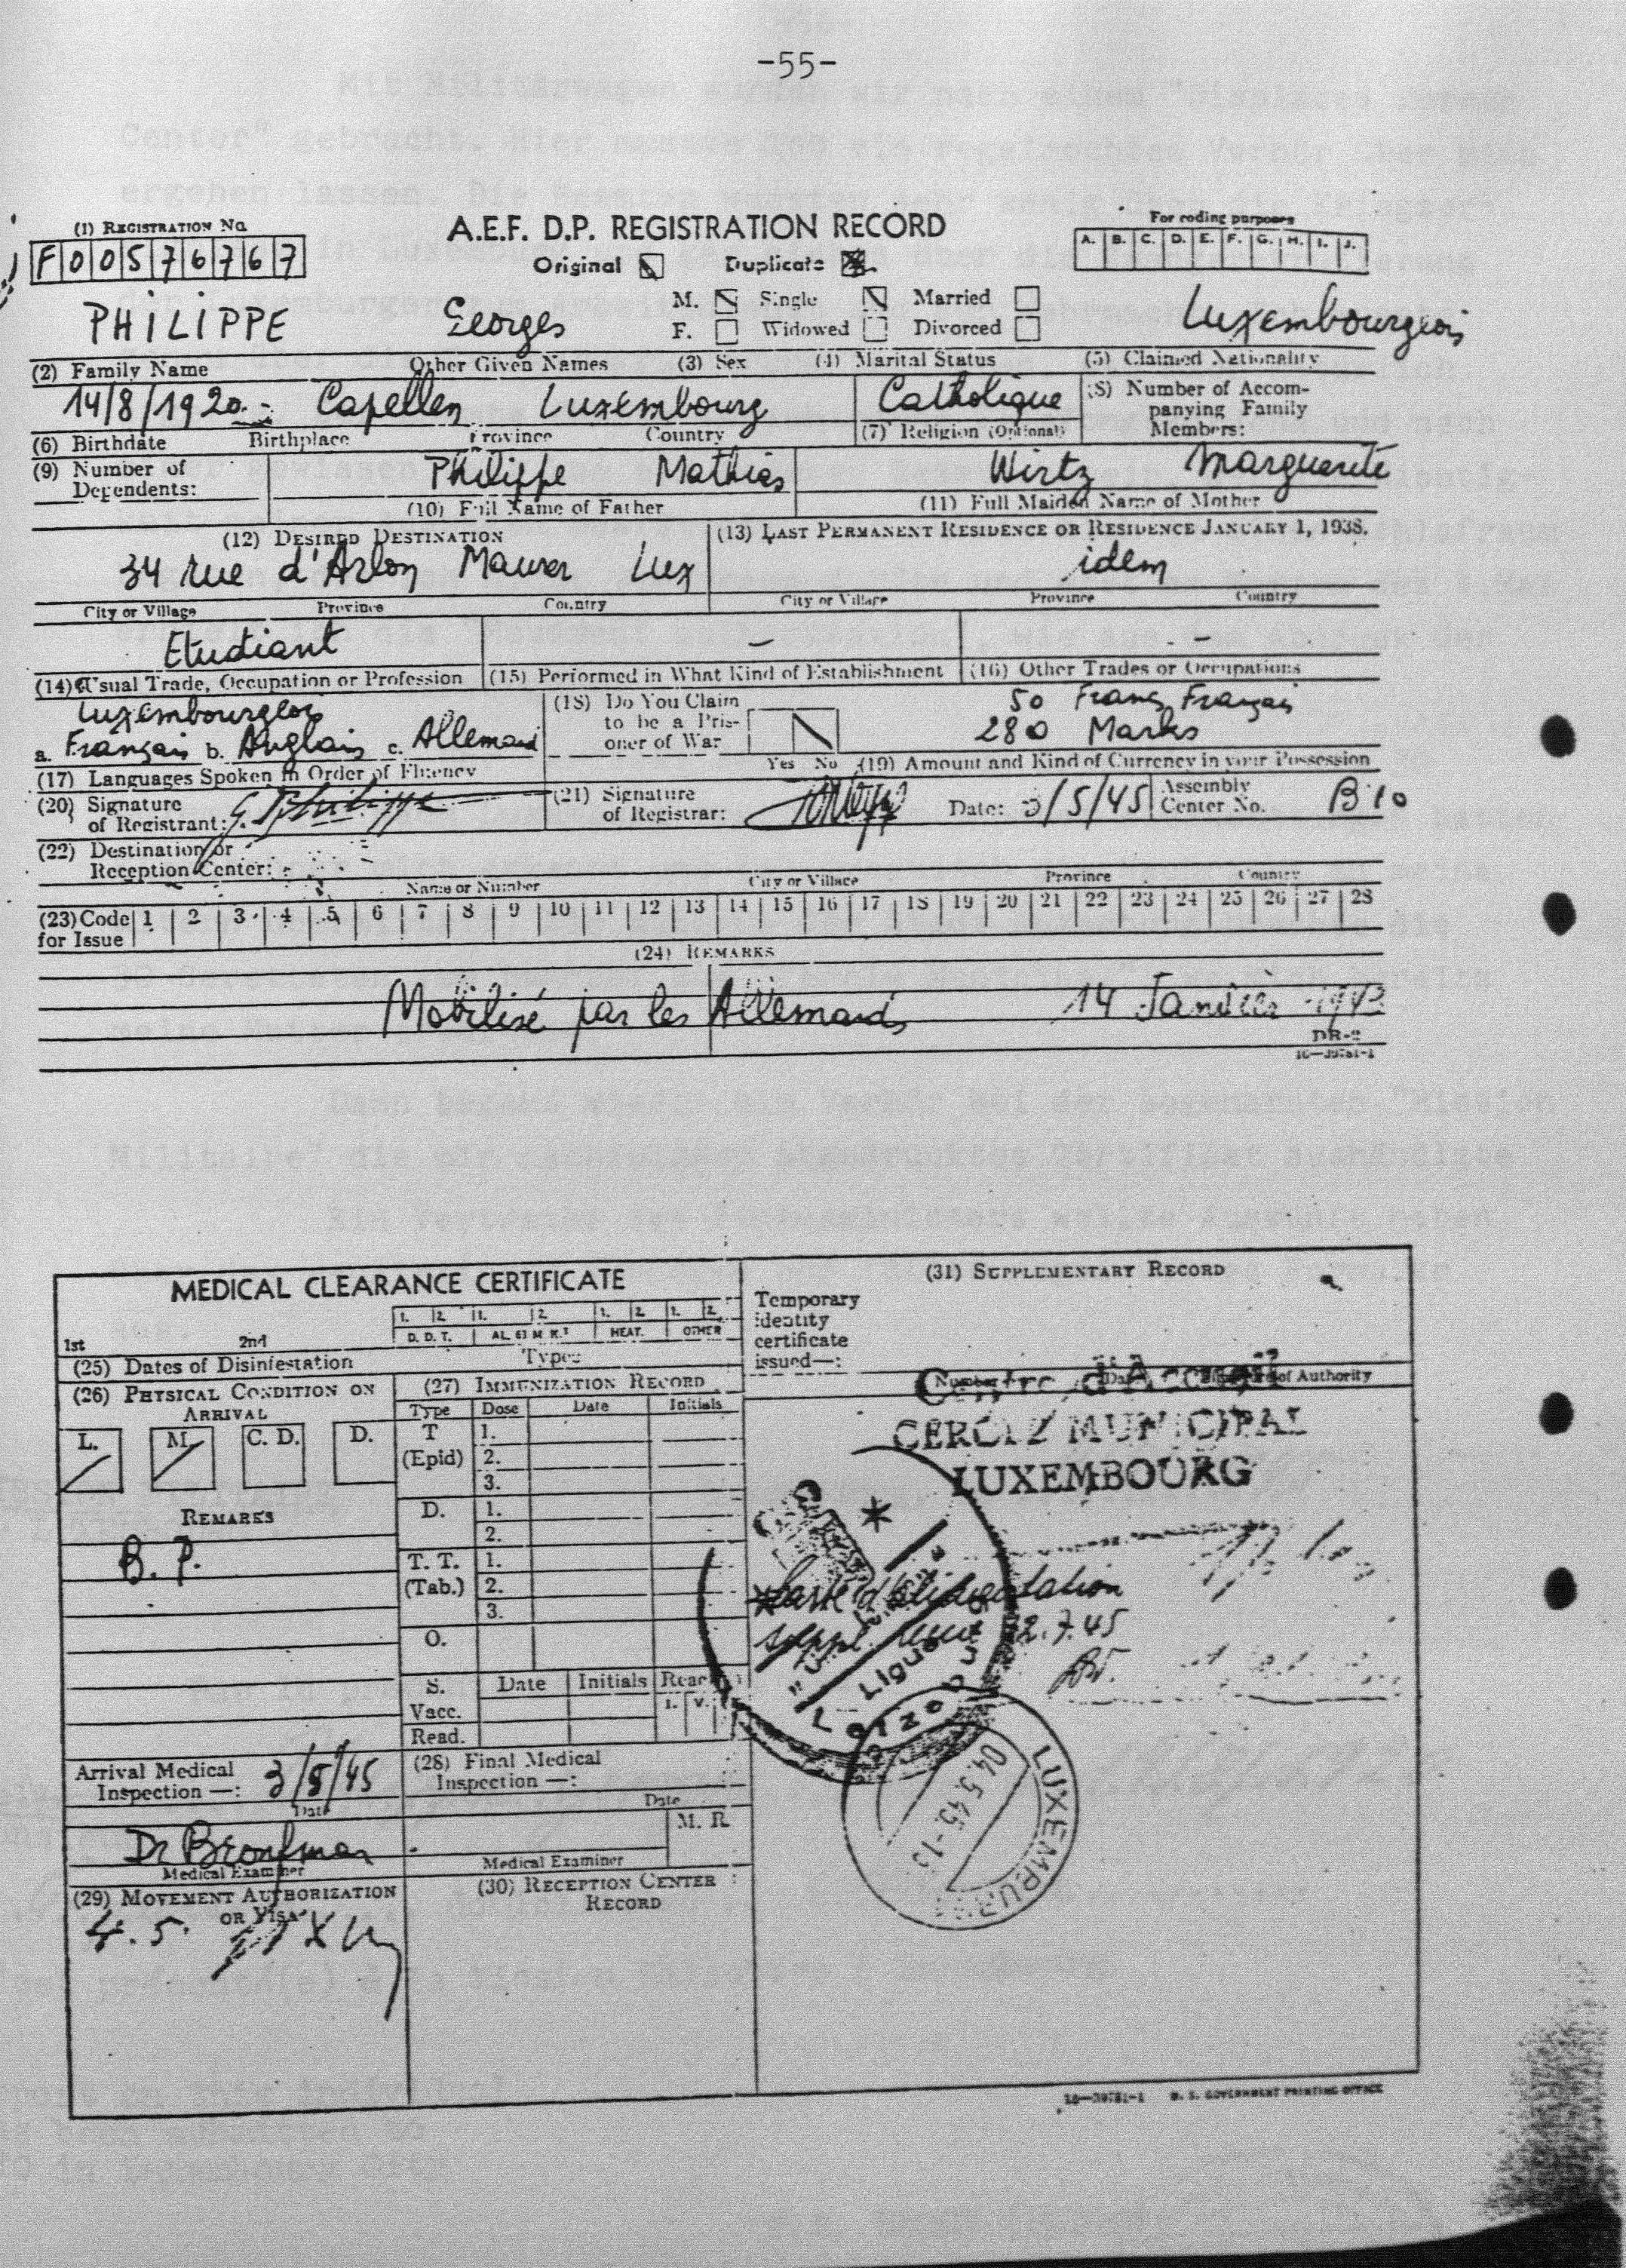 -55-
(1) REGISTRATION NO.
A.E.F. D.P. REGISTRATION RECORD
For coding purposes
F 0 0 5 7 6 7 6 7
Original Duplicate
A. B. C. D. E. F. G. H. I. J.
PHILIPPE Georges M. Single Married Luxembourgeois
F. Widowed Divorced
(2) Family Name Other Given Names (3) Sex (4) Marital Status (5) Claimed Nationality
14/8/1920.- Capellen Luxembourg Catholique (8) Number of Accom-
panying Family
Members:
(6) Birthdate Birthplace Province Country (7) Religion (Optional)
(9) Number of
Dependents:
Philippe Mathias Wirtz Marguerite
(10) Full Name of Father (11) Full Maiden Name of Mother
(12) DESIRED DESTINATION (13) LAST PERMANENT RESIDENCE OR RESIDENCE JANUARY 1, 1938.
34 rue d'Arlon Mamer Lux idem
City or Village Province Country City or Village Province Country
Etudiant - -
(14) Usual Trade, Occupation or Profession (15) Performed in What Kind of Establishment (16) Other Trades or Occupations
Luxembourgeois
a. Français b. Anglais c. Allemand
(17) Languages Spoken in Order of Fluency
(18) Do You Claim
to be a Pris-
oner of War
Yes No
50 Francs Français
280 Marks
(19) Amount and Kind of Currency in your Possession
(20) Signature
of Registrant: G. Philippe
(21) Signature
of Registrar:
Date: 3/5/45 Assembly
Center No. B 10
(22) Destination or
Reception Center:
Name or Number City or Village Province Country
(23) Code
for Issue
1 2 3 4 5 6 7 8 9 10 11 12 13 14 15 16 17 18 19 20 21 22 23 24 25 26 27 28
(24) REMARKS
Mobilisé par les Allemands 14 Janvier 1943
DR-2
16-39781-1
MEDICAL CLEARANCE CERTIFICATE
1. 2. 1. 2. 1. 2. 1. 2.
1st 2nd D. D. T. HEAT. OTHER
(25) Dates of Disinfestation Type:
(26) PHYSICAL CONDITION ON
ARRIVAL
L. M. C. D. D.
REMARKS
B. P.
(27) IMMUNIZATION RECORD
Type Dose Date Initials
T
(Epid)
1.
2.
3.
D. 1.
2.
T. T.
(Tab.)
1.
2.
3.
O.
S. Date Initials Reac
Vacc. I. V.
Read.
Arrival Medical
Inspection —: 3/5/45
Date
Dr Bronfman
Medical Examiner
(28) Final Medical
Inspection —:
Date
M. R.
Medical Examiner
(29) MOVEMENT AUTHORIZATION
OR VISA
4. 5.
(30) RECEPTION CENTER
RECORD
(31) SUPPLEMENTARY RECORD
Temporary
identity
certificate
issued—:
Number of Authority
Centre d'Accueil
CERCLE MUNICIPAL
LUXEMBOURG
Carte d'alimentation
suppl. 2.7.45
Ligue
Letzeb
LUXEMBURG
04.5.45.-15
16-39781-1 U. S. GOVERNMENT PRINTING OFFICE